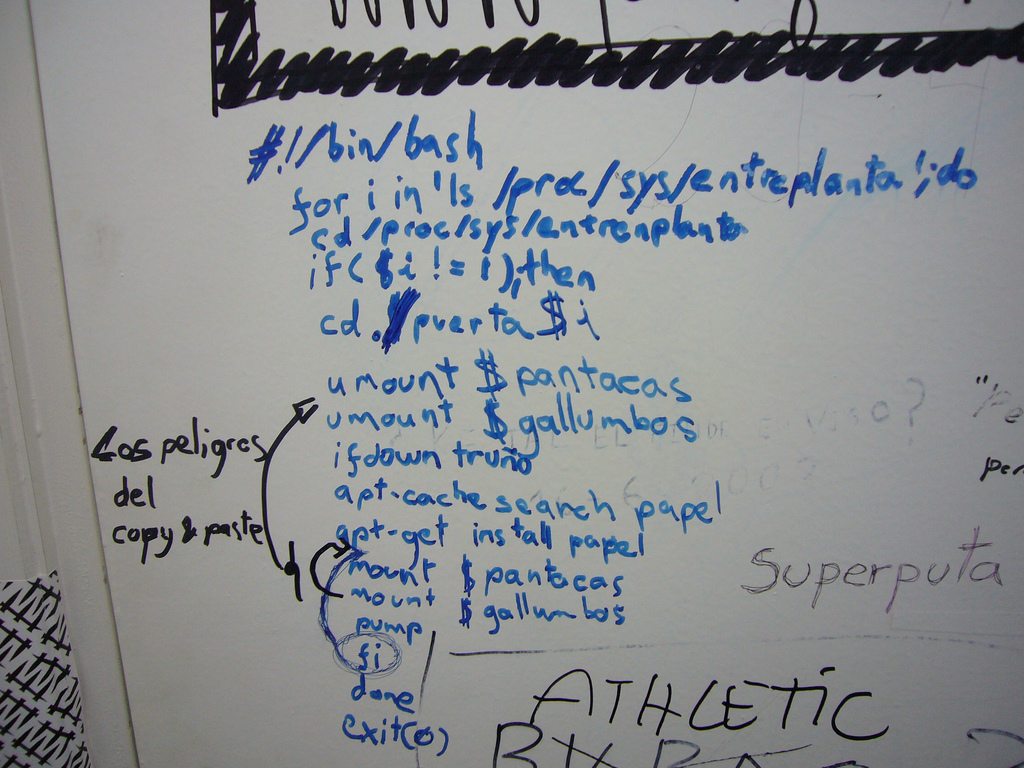 #!/bin/bash
for i in 'ls /proc/sys/entreplanta';do
cd /proc/sys/entrenplanta
if( $i != 1);then
cd ./puerta $i
umount $pantacas
umount $gallumbos
ifdown truño
apt-cache search papel
apt-get install papel
mount $pantacas
mount $gallumbos
pump
fi
done
exit(0)
Los peligros
del
copy & paste
Superputa
ATHLETIC